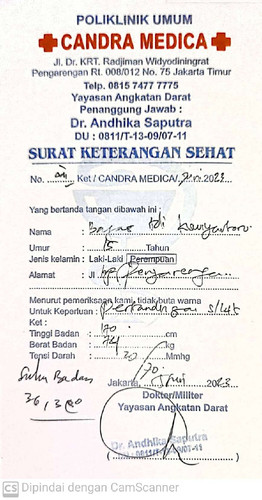 POLIKLINIK UMUM
CANDRA MEDICA
Jl. Dr. KRT. Radjiman Widyodiningrat
Pengarengan Rt. 008/012 No. 75 Jakarta Timur
Telp. 0815 7477 7775
Yayasan Angkatan Darat
Penanggung Jawab :
Dr. Andhika Saputra
DU : 0811/T-13-09/07-11
SURAT KETERANGAN SEHAT
No. Ket / CANDRA MEDICA/ Juni 2023
Yang bertanda tangan dibawah ini :
Nama : Bagas
Umur : 15 Tahun
Jenis kelamin : Laki-Laki Perempuan
Alamat : Jl Pengarengan
Menurut pemeriksaan kami, tidak buta warna
Untuk Keperluan :
Ket :
Tinggi Badan : 170 cm
Berat Badan : 74 kg
Tensi Darah : Mmhg
Suhu Badan
Jakarta, Juni 2023
Dokter/Militer
Yayasan Angkatan Darat
Dr. Andhika Saputra
DU : 0811/T-13-09/07-11
CS Dipindai dengan CamScanner